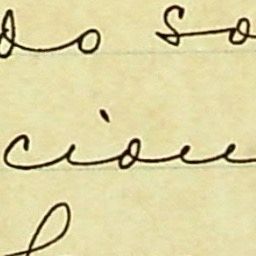 do so
ciou